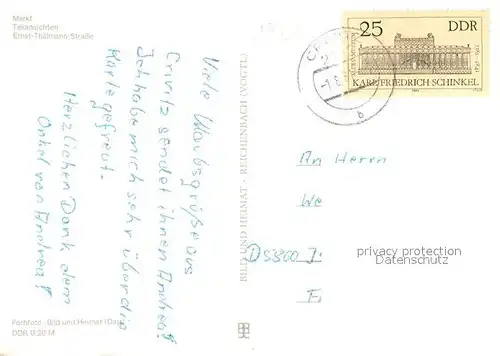 Markt
Teilansichten
Ernst-Thälmann-Straße
Viele Urlaubsgrüße aus
Crivitz sendet ihnen Andrea!
Ich habe mich sehr über die
Karte gefreut.
Herzlichen Dank dem
Onkel von Andrea!
Farbfoto: Bild und Heimat
DDR 0,20 M
BILD UND HEIMAT · REICHENBACH (VOGTL)
25 DDR
KARL FRIEDRICH SCHINKEL
b
An Herrn
We
D 5300 J
Fi
privacy protection
Datenschutz